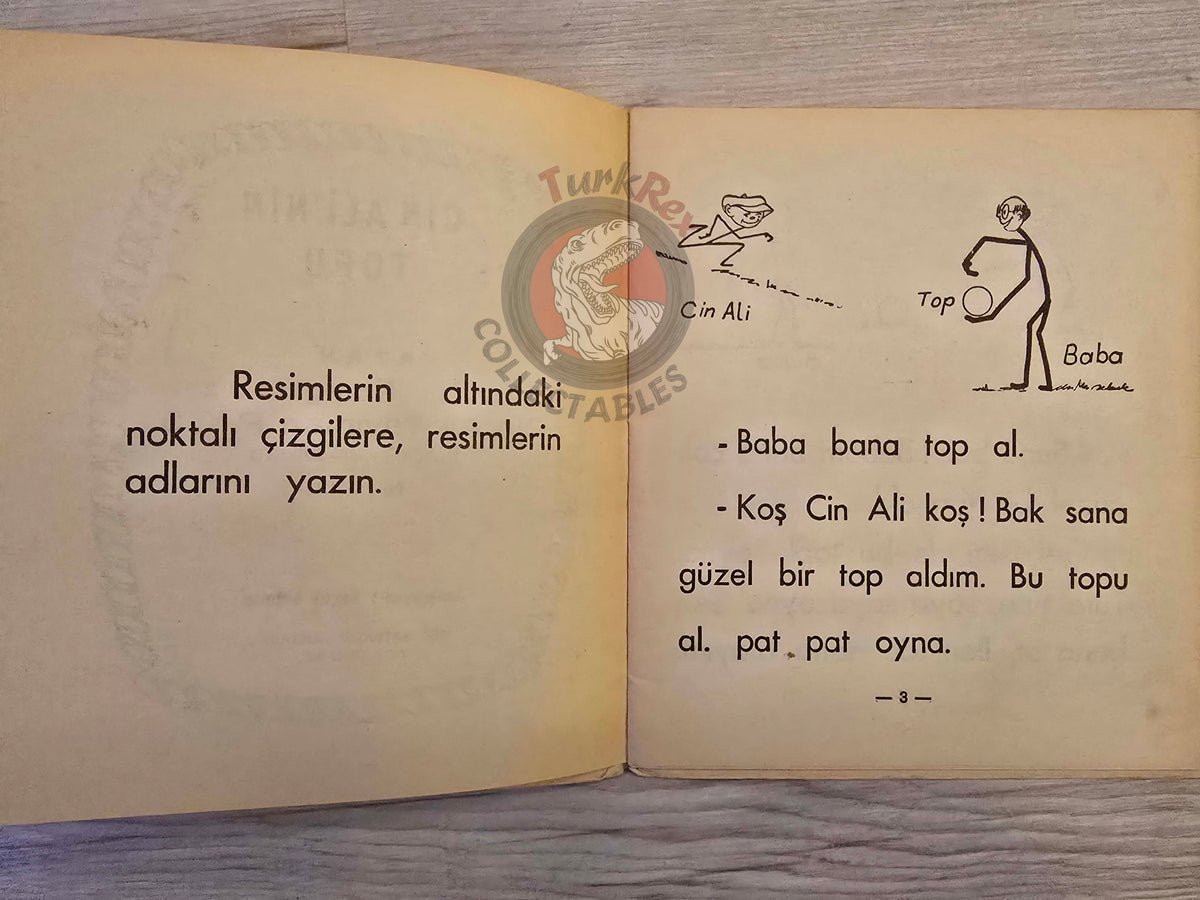 Resimlerin altındaki
noktalı çizgilere, resimlerin
adlarını yazın.
TurkRex
COLLECTABLES
Cin Ali
Top
Baba
- Baba bana top al.
- Koş Cin Ali koş! Bak sana
güzel bir top aldım. Bu topu
al. pat pat oyna.
— 3 —